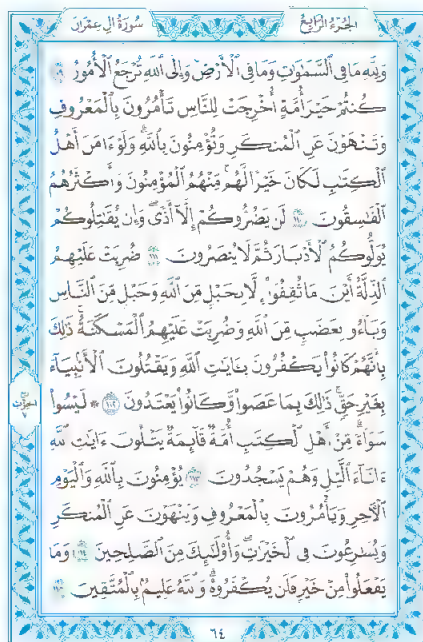 سُورَةُ آلِ عِمْرَانَ
الجُزْءُ الرَّابِعُ
وَلِلَّهِ مَا فِي ٱلسَّمَٰوَٰتِ وَمَا فِي ٱلْأَرْضِ وَإِلَى ٱللَّهِ تُرْجَعُ ٱلْأُمُورُ ١٠٩
كُنتُمْ خَيْرَ أُمَّةٍ أُخْرِجَتْ لِلنَّاسِ تَأْمُرُونَ بِٱلْمَعْرُوفِ
وَتَنْهَوْنَ عَنِ ٱلْمُنكَرِ وَتُؤْمِنُونَ بِٱللَّهِ وَلَوْ ءَامَنَ أَهْلُ
ٱلْكِتَٰبِ لَكَانَ خَيْرًا لَّهُم مِّنْهُمُ ٱلْمُؤْمِنُونَ وَأَكْثَرُهُمُ
ٱلْفَٰسِقُونَ ١١٠ لَن يَضُرُّوكُمْ إِلَّآ أَذًى وَإِن يُقَٰتِلُوكُمْ
يُوَلُّوكُمُ ٱلْأَدْبَارَ ثُمَّ لَا يُنصَرُونَ ١١١ ضُرِبَتْ عَلَيْهِمُ
ٱلذِّلَّةُ أَيْنَ مَا ثُقِفُوٓا۟ إِلَّا بِحَبْلٍ مِّنَ ٱللَّهِ وَحَبْلٍ مِّنَ ٱلنَّاسِ
وَبَآءُو بِغَضَبٍ مِّنَ ٱللَّهِ وَضُرِبَتْ عَلَيْهِمُ ٱلْمَسْكَنَةُ ذَٰلِكَ
بِأَنَّهُمْ كَانُوا۟ يَكْفُرُونَ بِـَٔايَٰتِ ٱللَّهِ وَيَقْتُلُونَ ٱلْأَنۢبِيَآءَ
بِغَيْرِ حَقٍّ ذَٰلِكَ بِمَا عَصَوا۟ وَّكَانُوا۟ يَعْتَدُونَ ١١٢ ۞ لَيْسُوا۟
سَوَآءً مِّنْ أَهْلِ ٱلْكِتَٰبِ أُمَّةٌ قَآئِمَةٌ يَتْلُونَ ءَايَٰتِ ٱللَّهِ
ءَانَآءَ ٱلَّيْلِ وَهُمْ يَسْجُدُونَ ١١٣ يُؤْمِنُونَ بِٱللَّهِ وَٱلْيَوْمِ
ٱلْءَاخِرِ وَيَأْمُرُونَ بِٱلْمَعْرُوفِ وَيَنْهَوْنَ عَنِ ٱلْمُنكَرِ
وَيُسَٰرِعُونَ فِي ٱلْخَيْرَٰتِ وَأُو۟لَٰٓئِكَ مِنَ ٱلصَّٰلِحِينَ ١١٤ وَمَا
يَفْعَلُوا۟ مِنْ خَيْرٍ فَلَن يُكْفَرُوهُ وَٱللَّهُ عَلِيمٌۢ بِٱلْمُتَّقِينَ ١١٥
٦٤